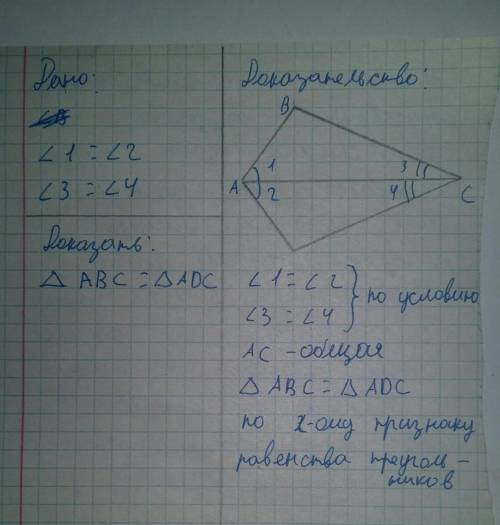 Дано:
∠1 = ∠2
∠3 = ∠4
Доказать:
△ ABC = △ADC
Доказательство:
B
1
3
A
2
4
C
∠1 = ∠2
∠3 = ∠4
} по условию
AC - общая
△ ABC = △ ADC
по 2-ому признаку
равенства треуголь-
ников